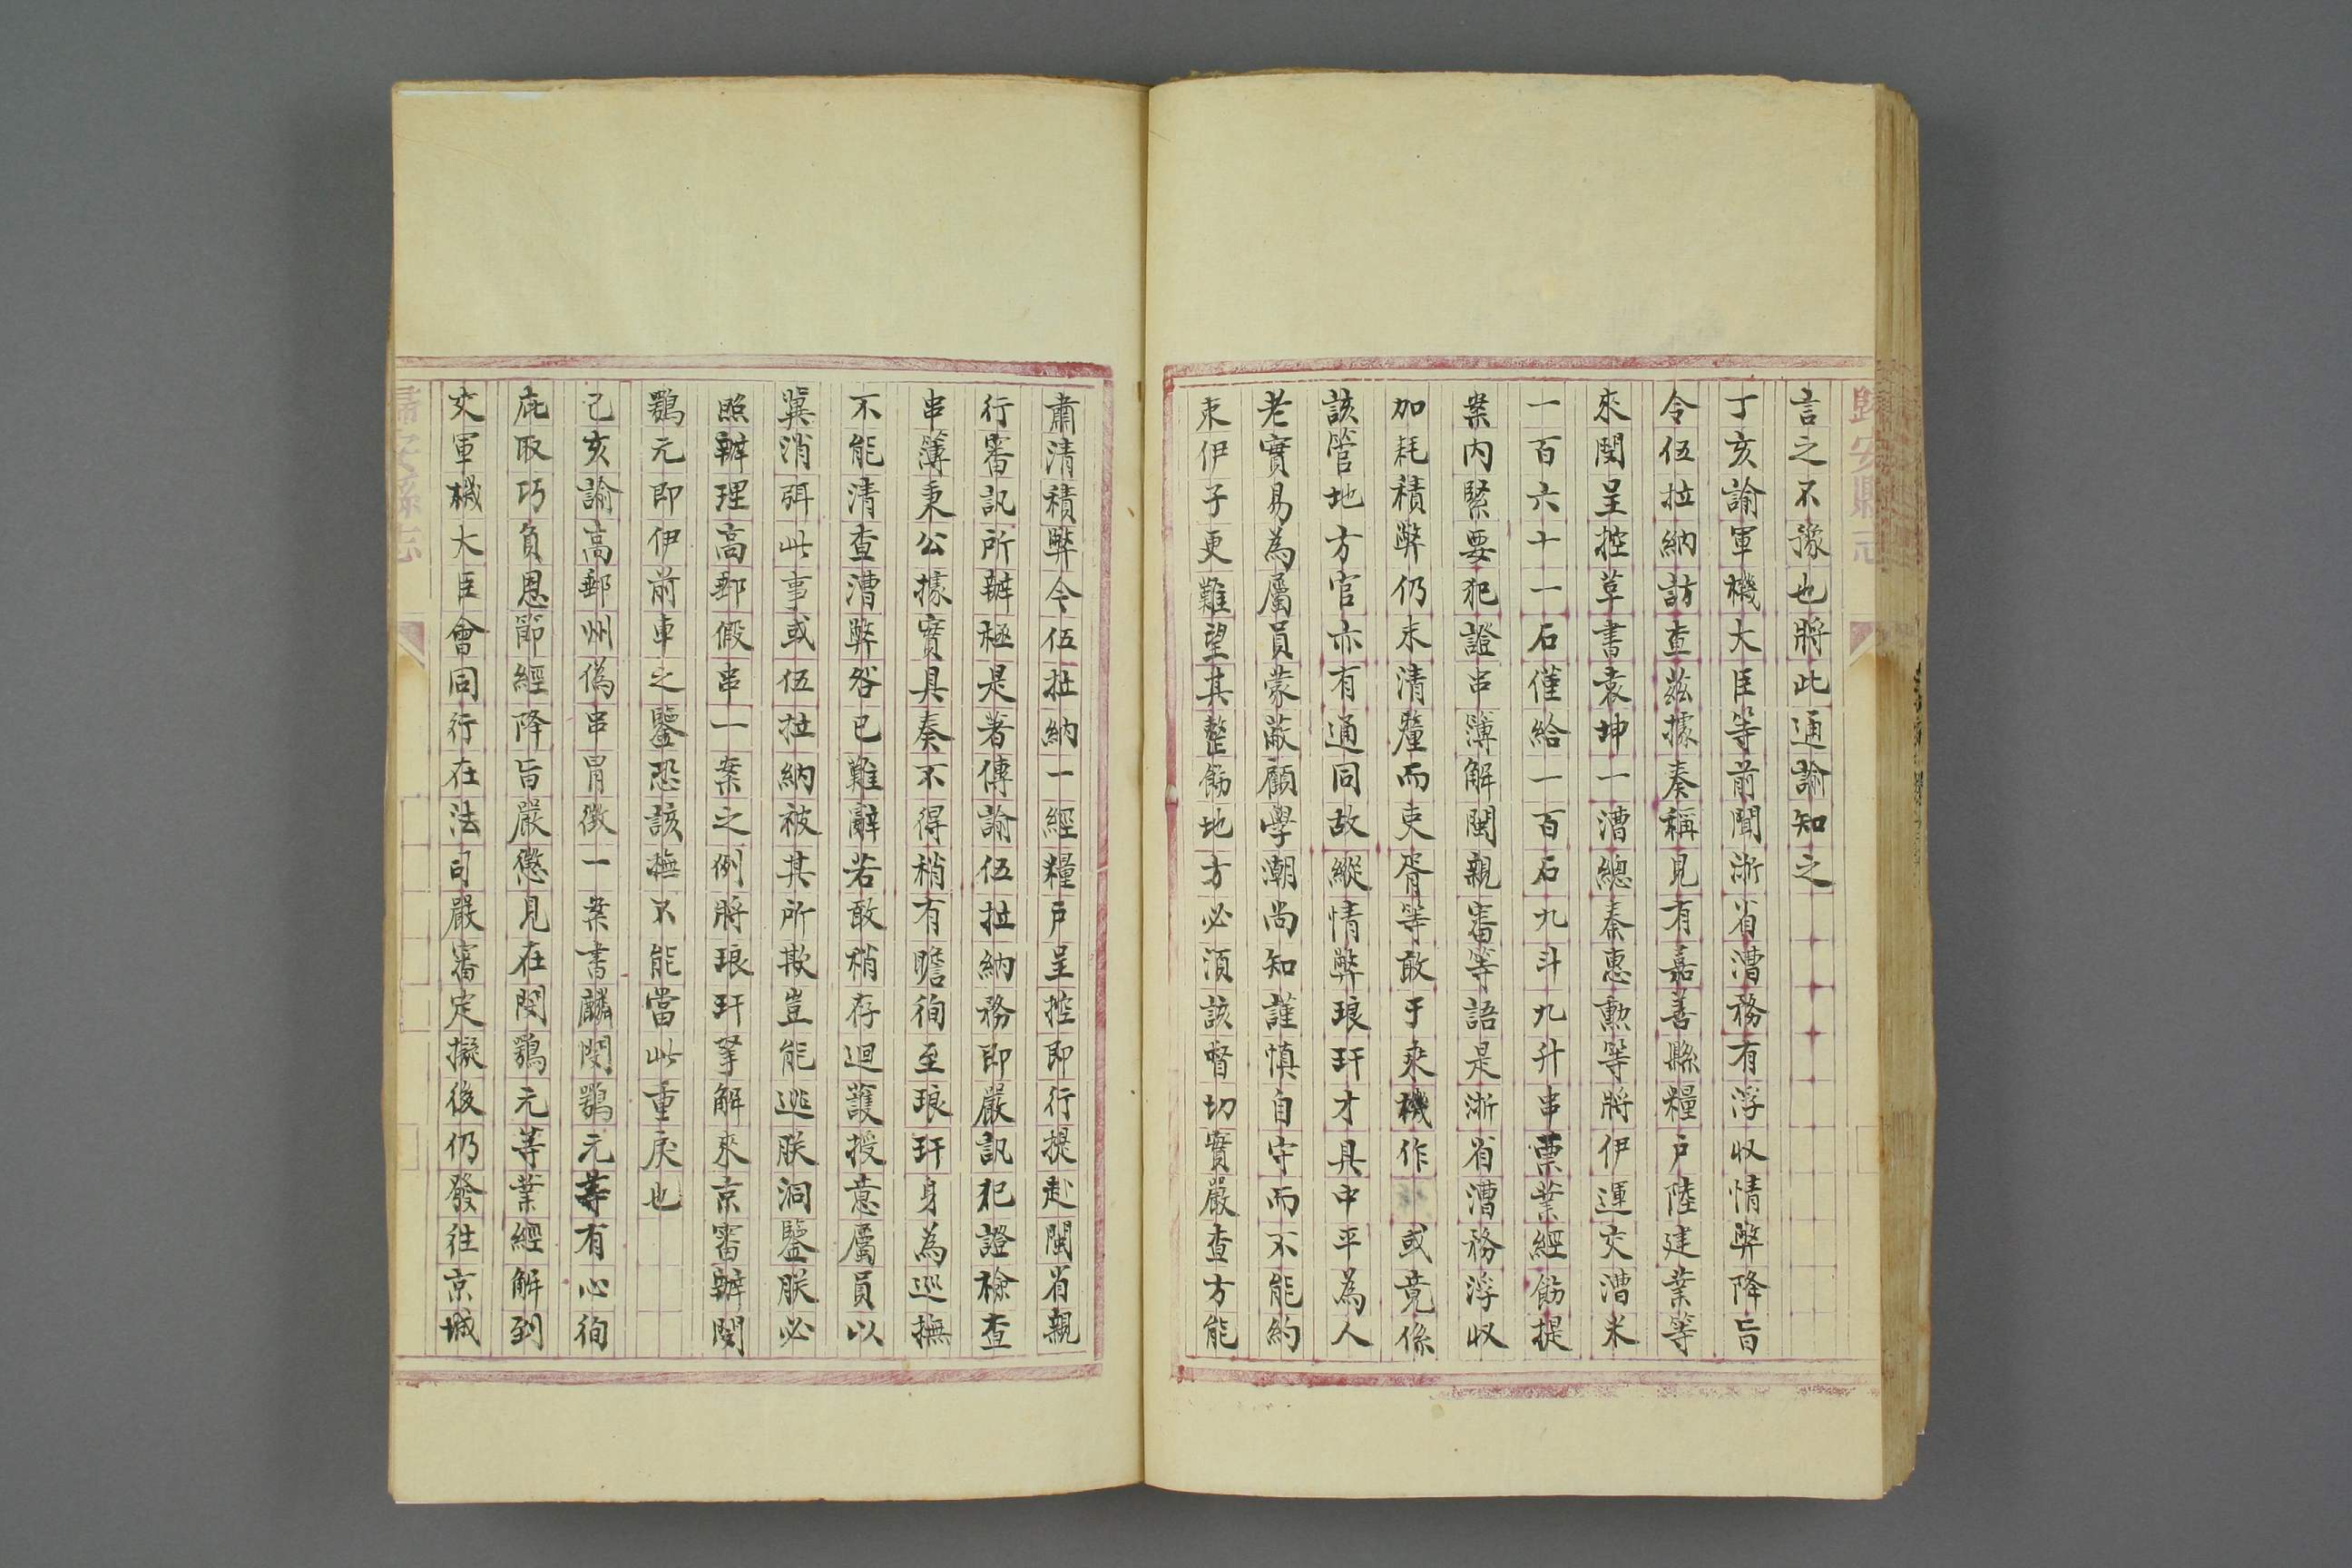 歸安縣志
言之不豫也將此通諭知之
丁亥諭軍機大臣等前聞浙省漕務有浮收情弊降旨
令伍拉納訪查茲據奏稱見有嘉善縣糧戶陸建業等
來閩呈控草書袁坤一漕總秦惠勲等將伊運交漕米
一百六十一石僅給一百石九斗九升串票業經飭提
案內緊要犯證串簿解閩親審等語是浙省漕務浮收
加耗積弊仍未清釐而吏胥等敢于乘機作 或竟係
該管地方官亦有通同故縱情弊琅玕才具中平為人
老實易為屬員蒙蔽顧學潮尚知謹慎自守而不能約
束伊子更難望其整飭地方必須該督切實嚴查方能
肅清積弊令伍拉納一經糧戶呈控即行提赴閩省親
行審訊所辦極是著傳諭伍拉納務即嚴訊犯證檢查
串簿秉公據實具奏不得稍有瞻徇至琅玕身為巡撫
不能清查漕弊咎已難辭若敢稍存迴護授意屬員以
冀消弭此事或伍拉納被其所欺豈能逃朕洞鑒朕必
照辦理高郵假串一案之例將琅玕拏解來京審辦閔
鶚元即伊前車之鑒恐該撫不能當此重戾也
己亥諭高郵州偽串冒徵一案書麟閔鶚元等有心徇
庇取巧負恩節經降旨嚴懲見在閔鶚元等業經解到
交軍機大臣會同行在法司嚴審定擬後仍發往京城
歸安縣志